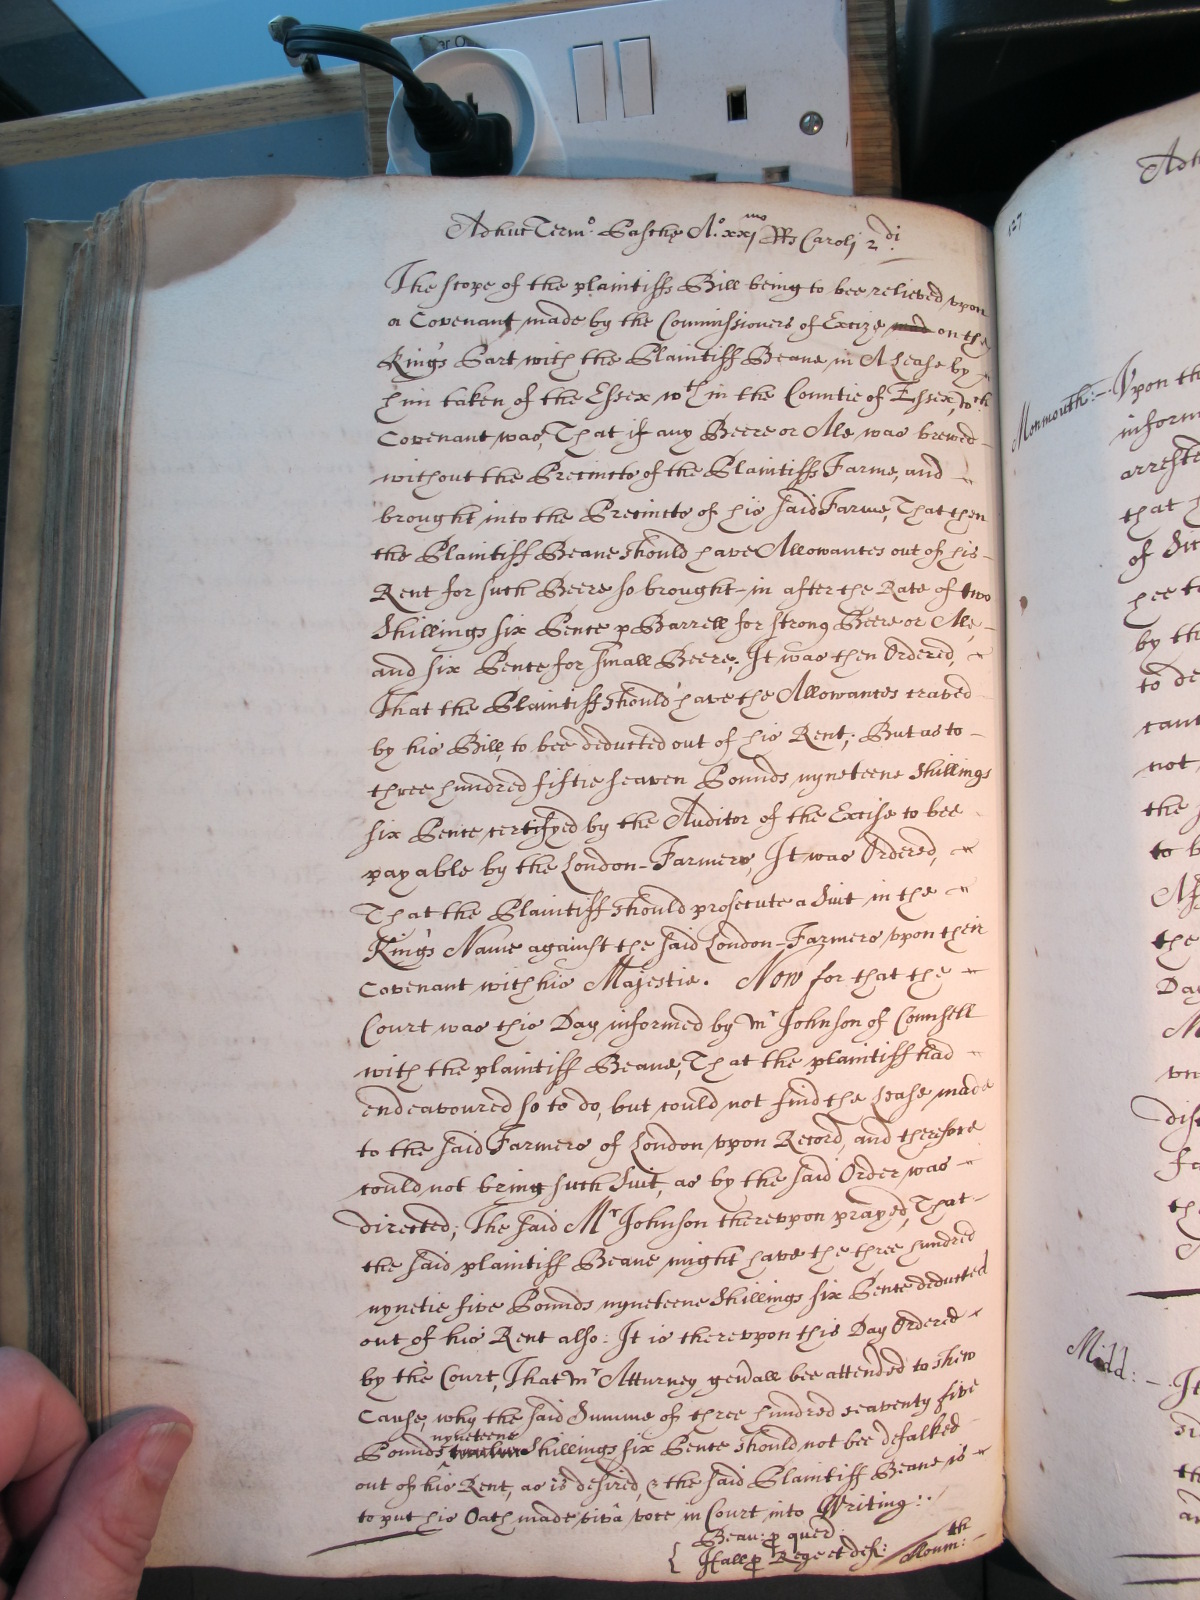 Adhuc Term:º Pasche Aº. xxjmo RRs Caroli 2di.
The scope of the plaintiffs Bill being to bee relieved vpon
a Covenant made by the Commissioners of Excize made on the
Kings Part with the Plaintiff Beane in A Lease by
him taken of the Essex wthin the Countie of Essex, wch
Covenant was, That if any Beere or Ale was brewed
without the Precincts of the Plaintiffs Farme, and
brought into the Precincts of his said Farme, That then
the Plaintiff Beane should have Allowances out of his
Rent for such Beere so brought in after the Rate of two
Shillings six Pence p Barrell for strong Beere or Ale,
and six Pence for small Beere; It was then Ordered,
That the Plaintiff should have the Allowances craved
by his Bill, to bee deducted out of his Rent; But as to
three hundred fiftie seaven Pounds nyneteene Shillings
six Pence certifyed by the Auditor of the Excise to bee
payable by the London-Farmers, It was Ordered,
That the Plaintiff should prosecute a Suit in the
Kings Name against the said London-Farmers vpon their
Covenant with his Majestie. Now for that the
Court was this Day informed by Mr Johnson of Counsell
with the plaintiff Beane, That the plaintiff had
endeavoured so to do, but could not find the Lease made
to the said Farmers of London vpon Record, and therefore
could not bring such Suit, as by the said Order was
directed; The said Mr Johnson therevpon prayed, That
the said plaintiff Beane might have the three hundred
nynetie five Pounds nyneteene Shillings six Pence deducted
out of his Rent also: It is therevpon this Day Ordered
by the Court, That Mr Atturney gen̄all bee attended to shew
Cause, why the said Summe of three hundred seaventy five
Pounds nyneteene Shillings six Pence should not bee defalked
out of his Rent, as is desired, & the said Plaintiff Beane is
to put his Oath made vivâ voce in Court into Writing:
Beau: p quer:
Hall p Rege et def:
127
Adh
Monmouth:- Vpon th
inform
arreste
that h
of
hee to
by th
to de
cant
not
the
to b
the
Day
M
vn
dis
fa
th
Midd: - It
th